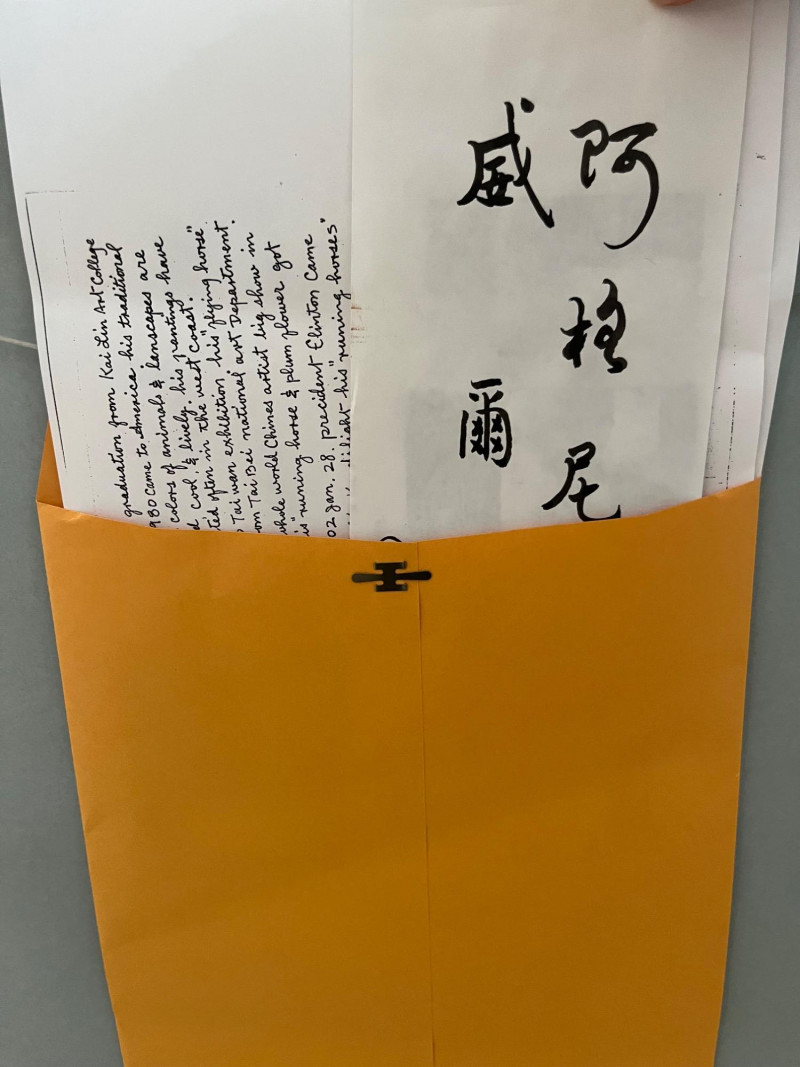 graduation from Kai Lin Art College
980 came to America his traditional
colors of animals & lanscapes are
d cool, & lively. his paintings have
ted often in the west coast.
Tai wan exhibition his "flying horse"
om Tai Bei national art Department.
whole world Chines artist big show in
is "runing horse & plum flower got
02 Jan. 28. precident Clinton came
dilight his "runing horses"
阿格尼
威爾